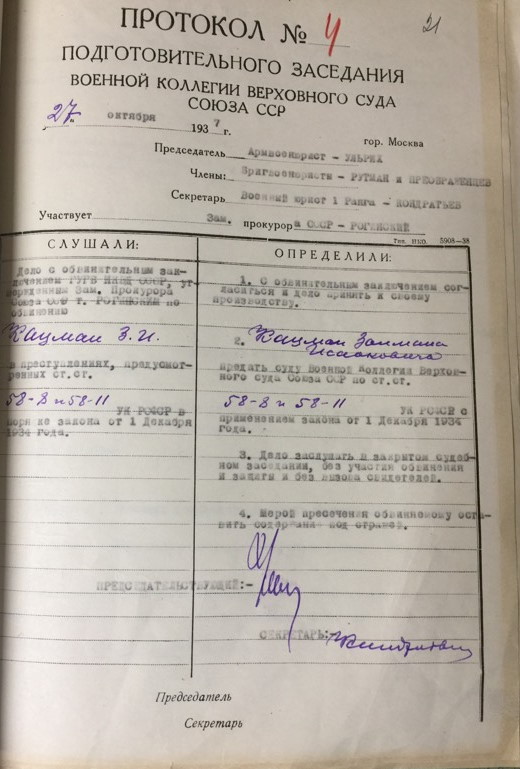 21
ПРОТОКОЛ № 4
ПОДГОТОВИТЕЛЬНОГО ЗАСЕДАНИЯ
ВОЕННОЙ КОЛЛЕГИИ ВЕРХОВНОГО СУДА
СОЮЗА ССР
27 октября 1937 г.
гор. Москва
Председатель Армвоенюрист - УЛЬРИХ
Члены: Бригвоенюристы - РУТМАН и ПРЕОБРАЖЕНЦЕВ
Секретарь Военный юрист 1 Ранга - КОНДРАТЬЕВ
Участвует Зам. прокурора СССР - РОГИНСКИЙ
5908—38
СЛУШАЛИ:
Дело с обвинительным зак-
лючением ГУГБ НКВД СССР, ут-
вержденным Зам. Прокурора
Союза ССР т. РОГИНСКИМ по
обвинению
Кацман З. И.
в преступлениях, предусмот-
ренных ст.ст.
58-8 и 58-11
УК РСФСР в
поря ке закона от 1 Декабря
1934 года.
ОПРЕДЕЛИЛИ:
1. С обвинительным заключением сог-
ласиться и дело принять к своему
производству.
2. Кацман Залмана
Исааковича
предать суду Военной Коллегии Верхов-
ного суда Союза ССР по ст.ст.
58-8 и 58-11
УК РСФСР с
применением закона от 1 Декабря 1934
года.
3. Дело заслушать в закрытом судеб-
ном заседании, без участия обвинения
и защиты и без вызова свидетелей.
4. Мерой пресечения обвиняемому оста-
вить содержание под стражей.
ПРЕДСЕДАТЕЛЬСТВУЮЩИЙ:-
СЕКРЕТАРЬ:-
Председатель
Секретарь